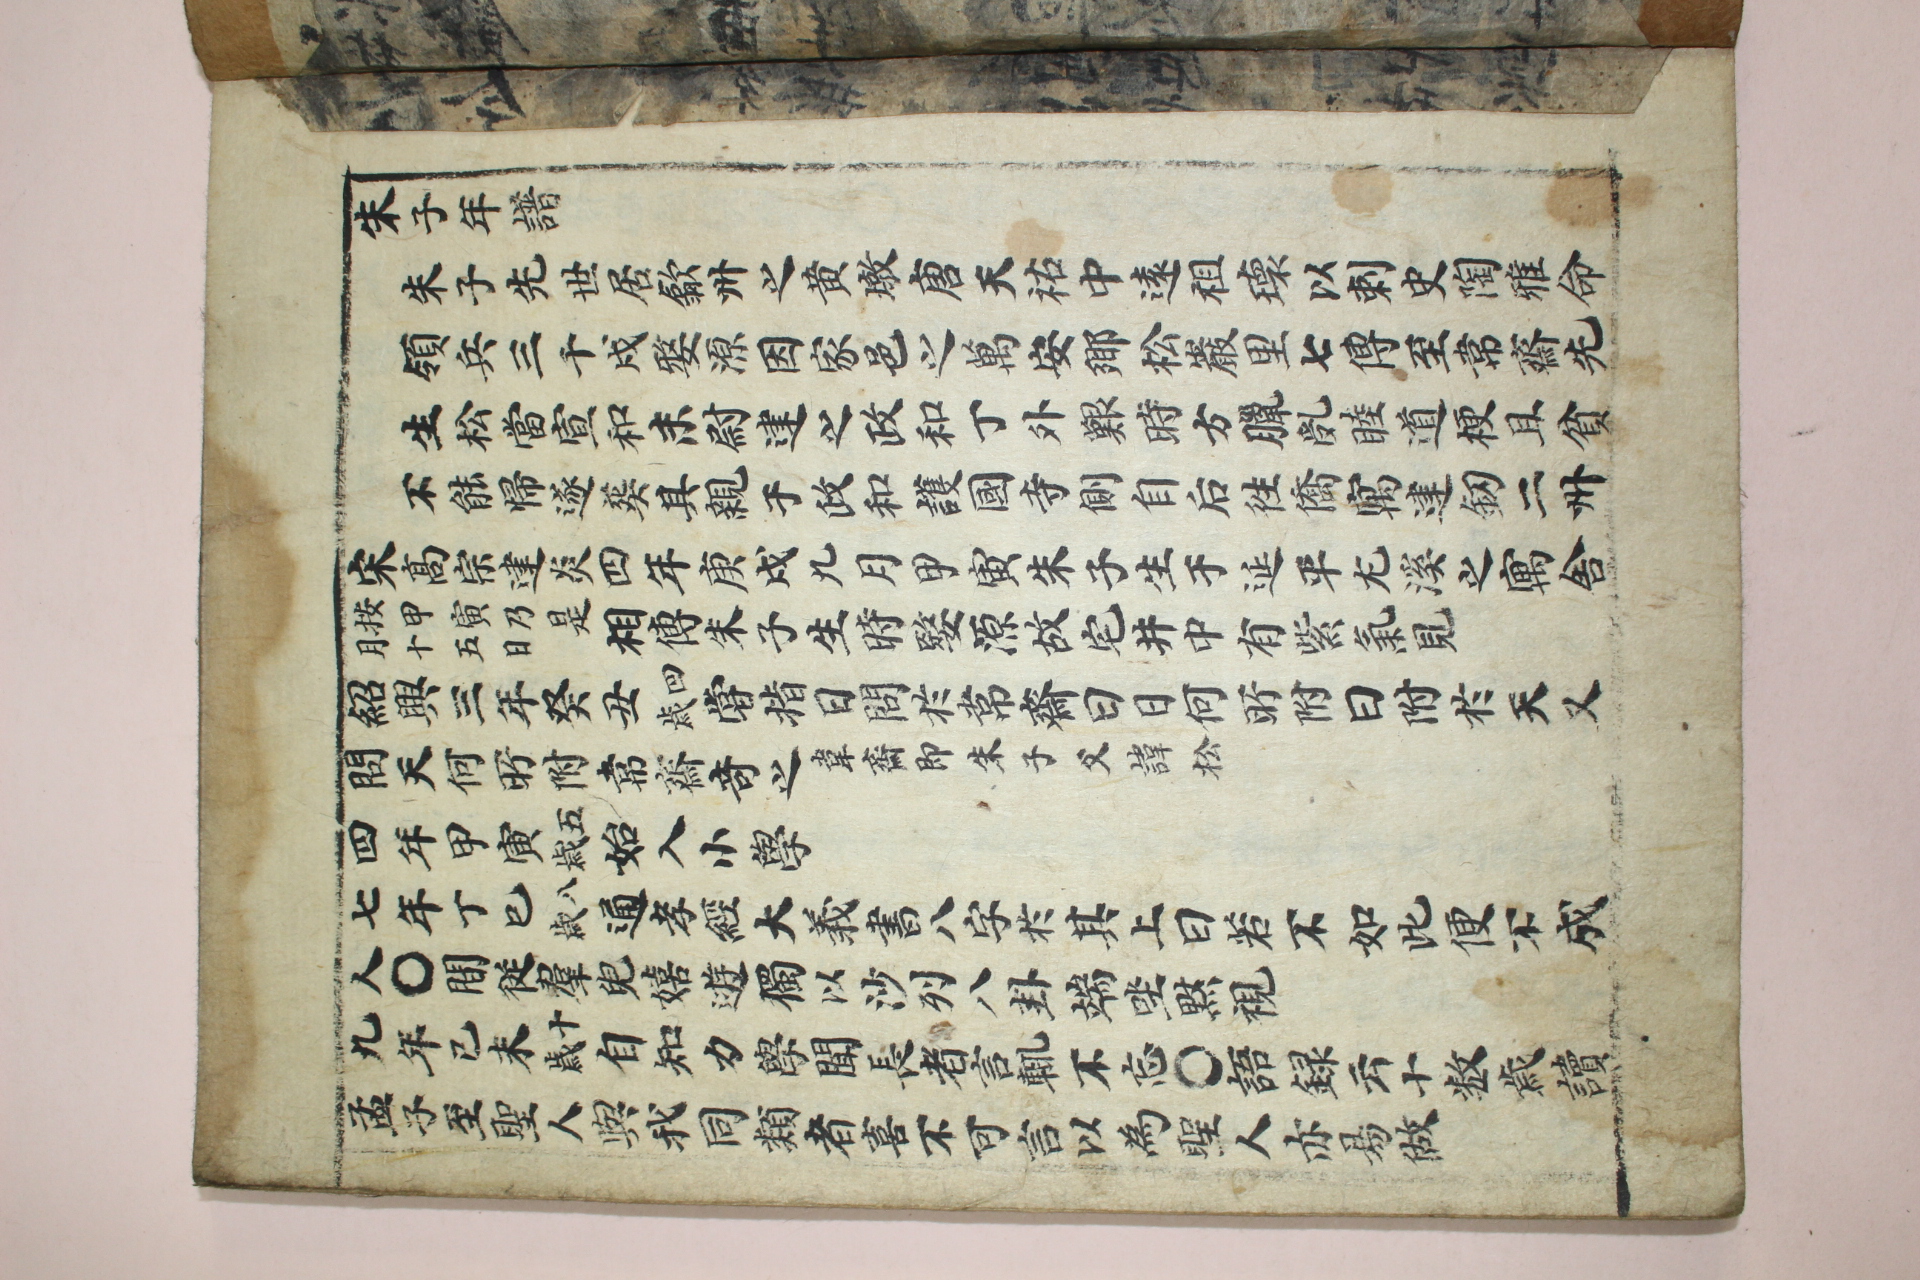 朱子年譜
朱子先世居歙州之黃墩唐天祐中遠祖瓌以刺史陶雅命
領兵三千戍婺源因家邑之萬安鄉松巖里七傳至韋齋先
生松當宣和末尉建之政和丁外艱時方臘亂睦道梗且貧
不能歸遂葬其親于政和護國寺側自后往僑寓建釰二州
宋高宗建炎四年庚戌九月甲寅朱子生于延平尤溪之寓舍
按甲寅乃是月十五日相傳朱子生時婺源故宅井中有紫氣見
紹興三年癸丑四歲嘗指日問於韋齋曰日何所附曰附於天又
問天何所附韋齋奇之韋齋即朱子父諱松
四年甲寅五歲始入小學
七年丁巳八歲通孝經大義書八字於其上曰若不如此便不成
人〇間從羣兒嬉遊獨以沙列八卦端坐默視
九年己未十歲自知力學聞長者言輒不忘〇語錄云十数歲讀
孟子至聖人與我同類者喜不可言以為聖人亦易做